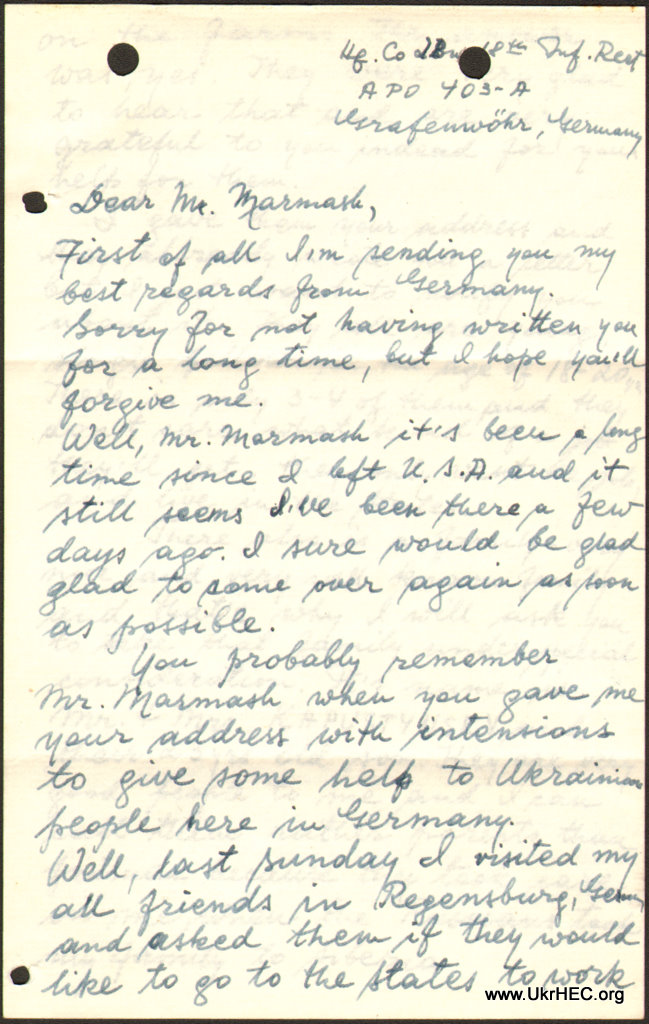 Hq. Co 1Bn 18th Inf. Regt
APO 403-A
Grafenwöhr, Germany
Dear Mr. Marmash,
First of all I'm sending you my
best regards from Germany.
Sorry for not having written you
for a long time, but I hope you'll
forgive me.
Well, Mr. Marmash it's been a long
time since I left U.S.A. and it
still seems I've been there a few
days ago. I sure would be glad
glad to come over again as soon
as possible.
You probably remember
Mr. Marmash when you gave me
your address with intensions
to give some help to Ukrainian
people here in Germany.
Well, last sunday I visited my
all friends in Regensburg, Germany
and asked them if they would
like to go to the states to work
www.UkrHEC.org